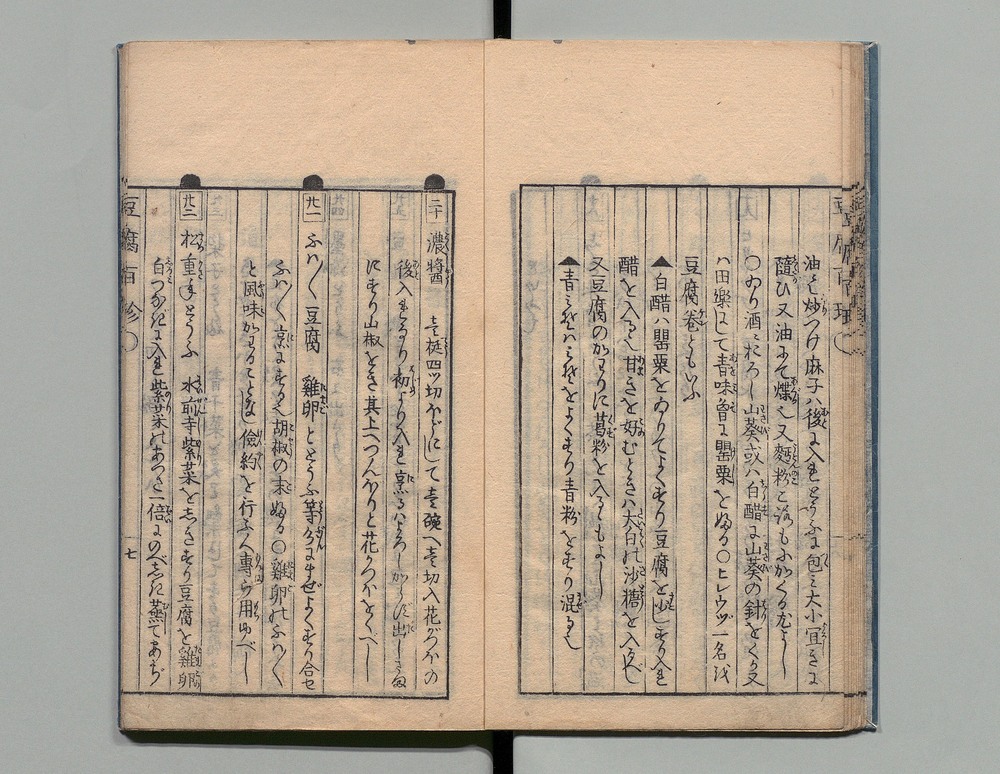 油にて炒つけ麻子ハ後に入るとうふに包ミ大小宜きに
随ひ又油にて煠る又麪粉ころもにかくる尤よし
○ゐり酒におろし山葵或ハ白醋に山葵の針をくり又
ハ田樂にして青味曾に罌粟をふる○ヒレウヅ一名を
豆腐巻ともいふ
▲白醋ハ罌粟をゐりてよくすり豆腐を少しすり入れ
醋を入るゝ甘きを好むときハ太白の沙糖を入るべし
又豆腐のかわりに葛粉を入るもよし
▲青ミそハミそをよくすり青粉をすり混るも
二十 濃醤 壱挺四ツ切ほどにして壱碗へ壱切入花がつほの
後入れなり初より入れ烹るハよろしからず出しさま
にすり山椒をき其上へつんもりと花がつほをくべし
廿一 ふハ〳〵豆腐 雞卵ととうふ等分にまぜよくすり合せ
ふハ〳〵烹にする也胡椒の末ふる○雞卵のふハ〳〵
と風味かわることなし倹約を行ふ人專ら用ゆべし
廿二 松重ねとうふ 水前寺紫菜をしきすり豆腐を雞卵
白つなぎに入れ紫菜のあつさ一倍にのべしき蒸てあぢ
豆腐百珍 七